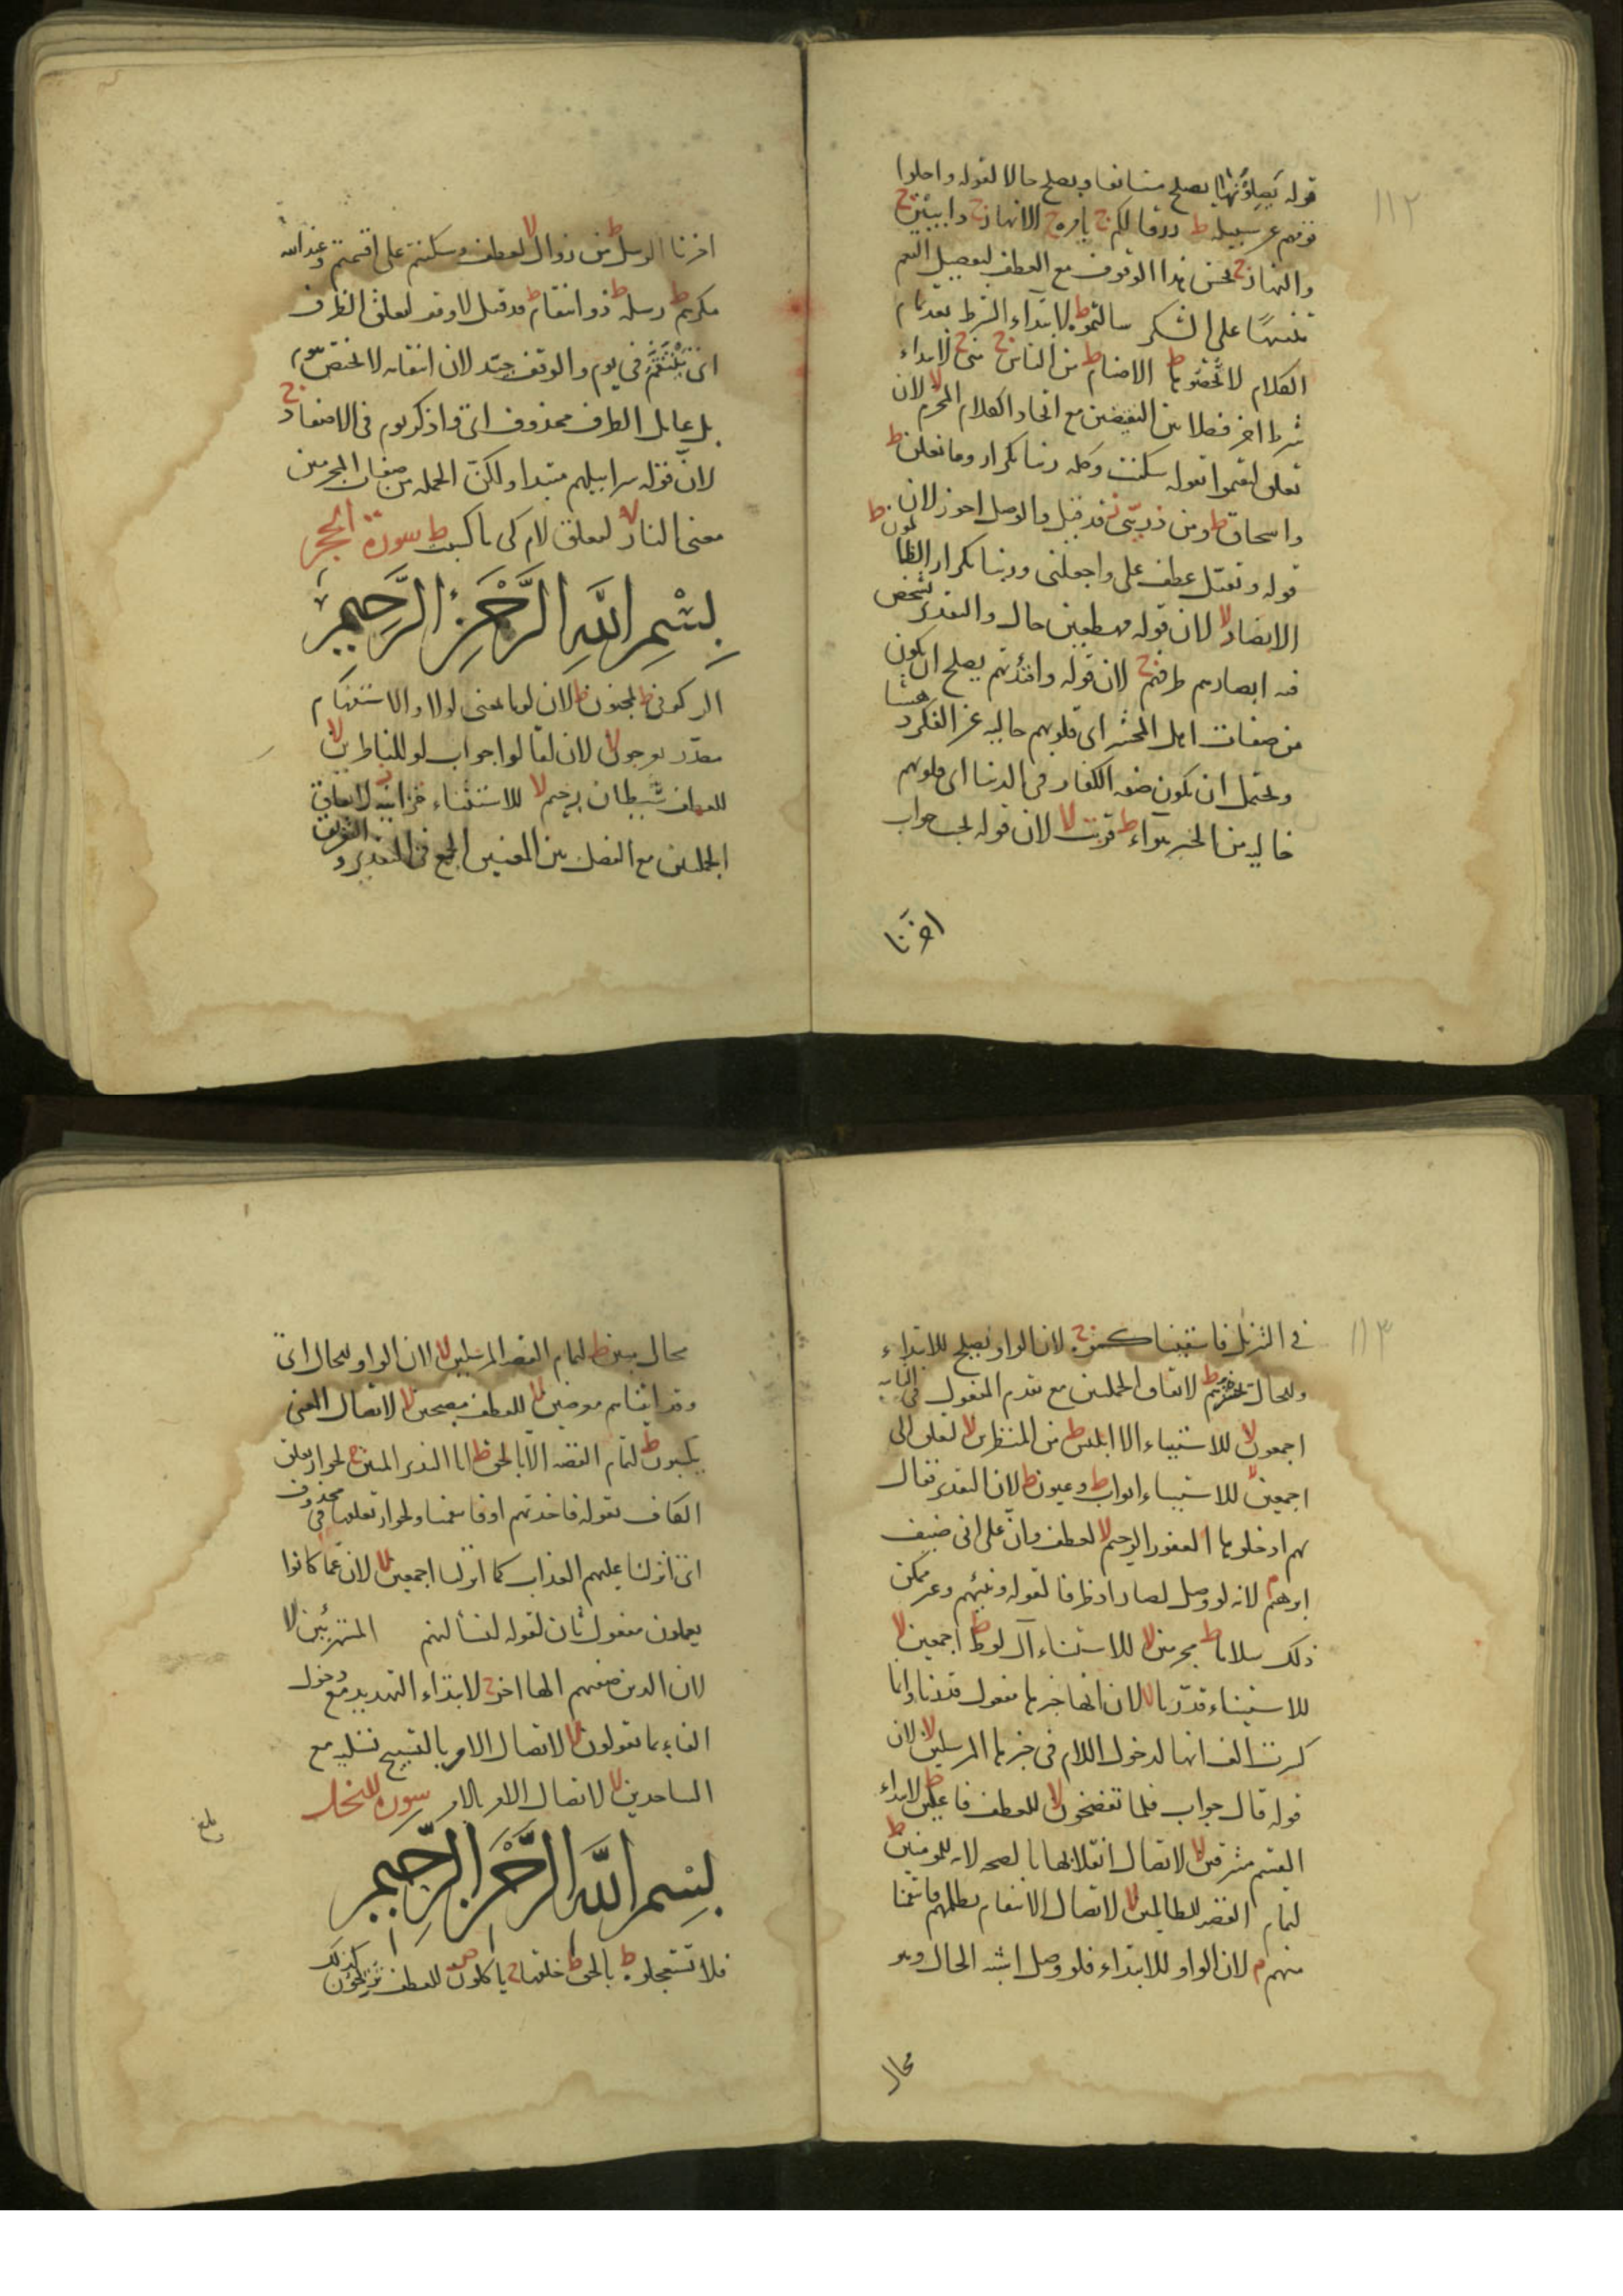 ١١٢
قوله يصلونها يصلح مستانفا ويصلح حالا لقوله واحلوا
قومهم عن سبيله ط رزقا لكم ج بامره ج الانهار ج دائبين ج
والنهار ج لحسن هذا الوقوف مع العطف لتفصيل النعم
تنبيها على الشكر سالتموه ط لابتداء الشرط بعد تمام
الكلام لا تحصوها ط الاصنام ط من الناس ج مني ج لابتداء
شرط اخر فصلا بين النقيضين مع اتحاد الكلام المحرم لا لان
تعلق ليقيموا بقوله اسكنت وكلمه ربنا تكرار وما نعلن ط
واسحاق ط ومن ذريتي قد قيل والوصل اجوز لان
قوله وتقبل عطف على واجعلني وربنا تكرار الظالمون ط
الابصار لا لان قوله مهطعين حال والتقدير تشخص
فيه ابصارهم طرفهم ج لان قوله وافئدتهم يصلح ان يكون
من صفات اهل المحشر اى قلوبهم خاليه عن الفكر
ويحتمل ان يكون صفه الكفار فى الدنيا اى قلوبهم
خاليه من الخير هواء ط قريب لا لان قوله نجب جواب
اخرنا
اخرنا الرسل ط من زوال لا لعطف وسكنتم على اقسمتم وعند الله
مكرهم ط رسله ط ذو انتقام ط قد قيل لا وقد لتعلق الظرف
اى ينتقم فى يوم والوقف جيد لان انتقامه لا يختص بيوم
بل عامل الظرف محذوف اى واذكر يوم فى الاصفاد ج
لان قوله سرابيلهم مبتدا ولكن الجمله من صفات المجرمين
معنى النار لا لتعلق لام كى ما كسبت ط سورة الحجر
بسم الله الرحمن الرحيم
الر كوفى ط لمجنون ط لان لوما بمعنى لولا والاستفهام
مقدر بعرجون لا لان لقالوا جواب لو للناظرين لا
للعطف شيطان رجيم لا للاستثناء خزائنه لاتفاق
الجملتين مع الفصل بين المعنيين الجمع فى التقدير و التفريق
١١٣
فى التنزيل فاسقيناكموه ج لان الواو يصلح للابتداء
وللحال يحشرهم ط لاتفاق الجملتين مع تقدم المفعول فى الثانيه
اجمعون لا للاستثناء الا ابليس ط من المنظرين لا لتعلق الى
اجمعين لا للاستثناء ابواب ط وعيون ط لان التقدير يقال
لهم ادخلوها الغفور الرحيم لا لعطف وان على انى ضيف
ابرهيم م لانه لو وصل لصار اذ ظرفا لقوله ونبئهم وغير ممكن
ذلك سلاما ط مجرمين لا للاستثناء آل لوط ط اجمعين لا
للاستثناء قدرنا لا لان انها خبرها مفعول قدرنا وانما
كسرت الف انها لدخول اللام فى خبرها المرسلون لا لان
قوله قال جواب فلما تفضحون لا للعطف فاعلين ط لابتداء
القسم مشرقين لا لاتصال انقلابها بالصيحه لايه للمؤمنين ط
لتمام القصه لظالمين لا لاتصال الانتقام بظلمهم فانتقمنا
منهم م لان الواو للابتداء فلو وصل اشبه الحال وهو
محال
محال مبين ط لتمام القصه المرسلين لا لان الواو للحال اى
وقد اتيناهم معرضين لا للعطف مصبحين لا لاتصال المعنى
يكسبون ط لتمام القصه الا بالحق ط انا النذير المبين ج لجواز تعلق
الكاف بقوله فاخذتهم او فانتقمنا ولجواز تعلقها فى محذوف
اى انزلنا عليهم العذاب كما انزلنا اجمعين لا لان عما كانوا
يعملون مفعول ثان لقوله لنسألنهم المستهزئين لا
لان الذين صفتهم الها اخر ج لابتداء التهديد مع دخول
الفاء بما يقولون لا لاتصال الامر بالتسبيح تسليه مع
الساجدين لا لاتصال الامر بالامر سورة النحل
بلغ
بسم الله الرحمن الرحيم
فلا تستعجلوه ط بالحق ط خلقها ج تاكلون ص للعطف تريحون كذلك